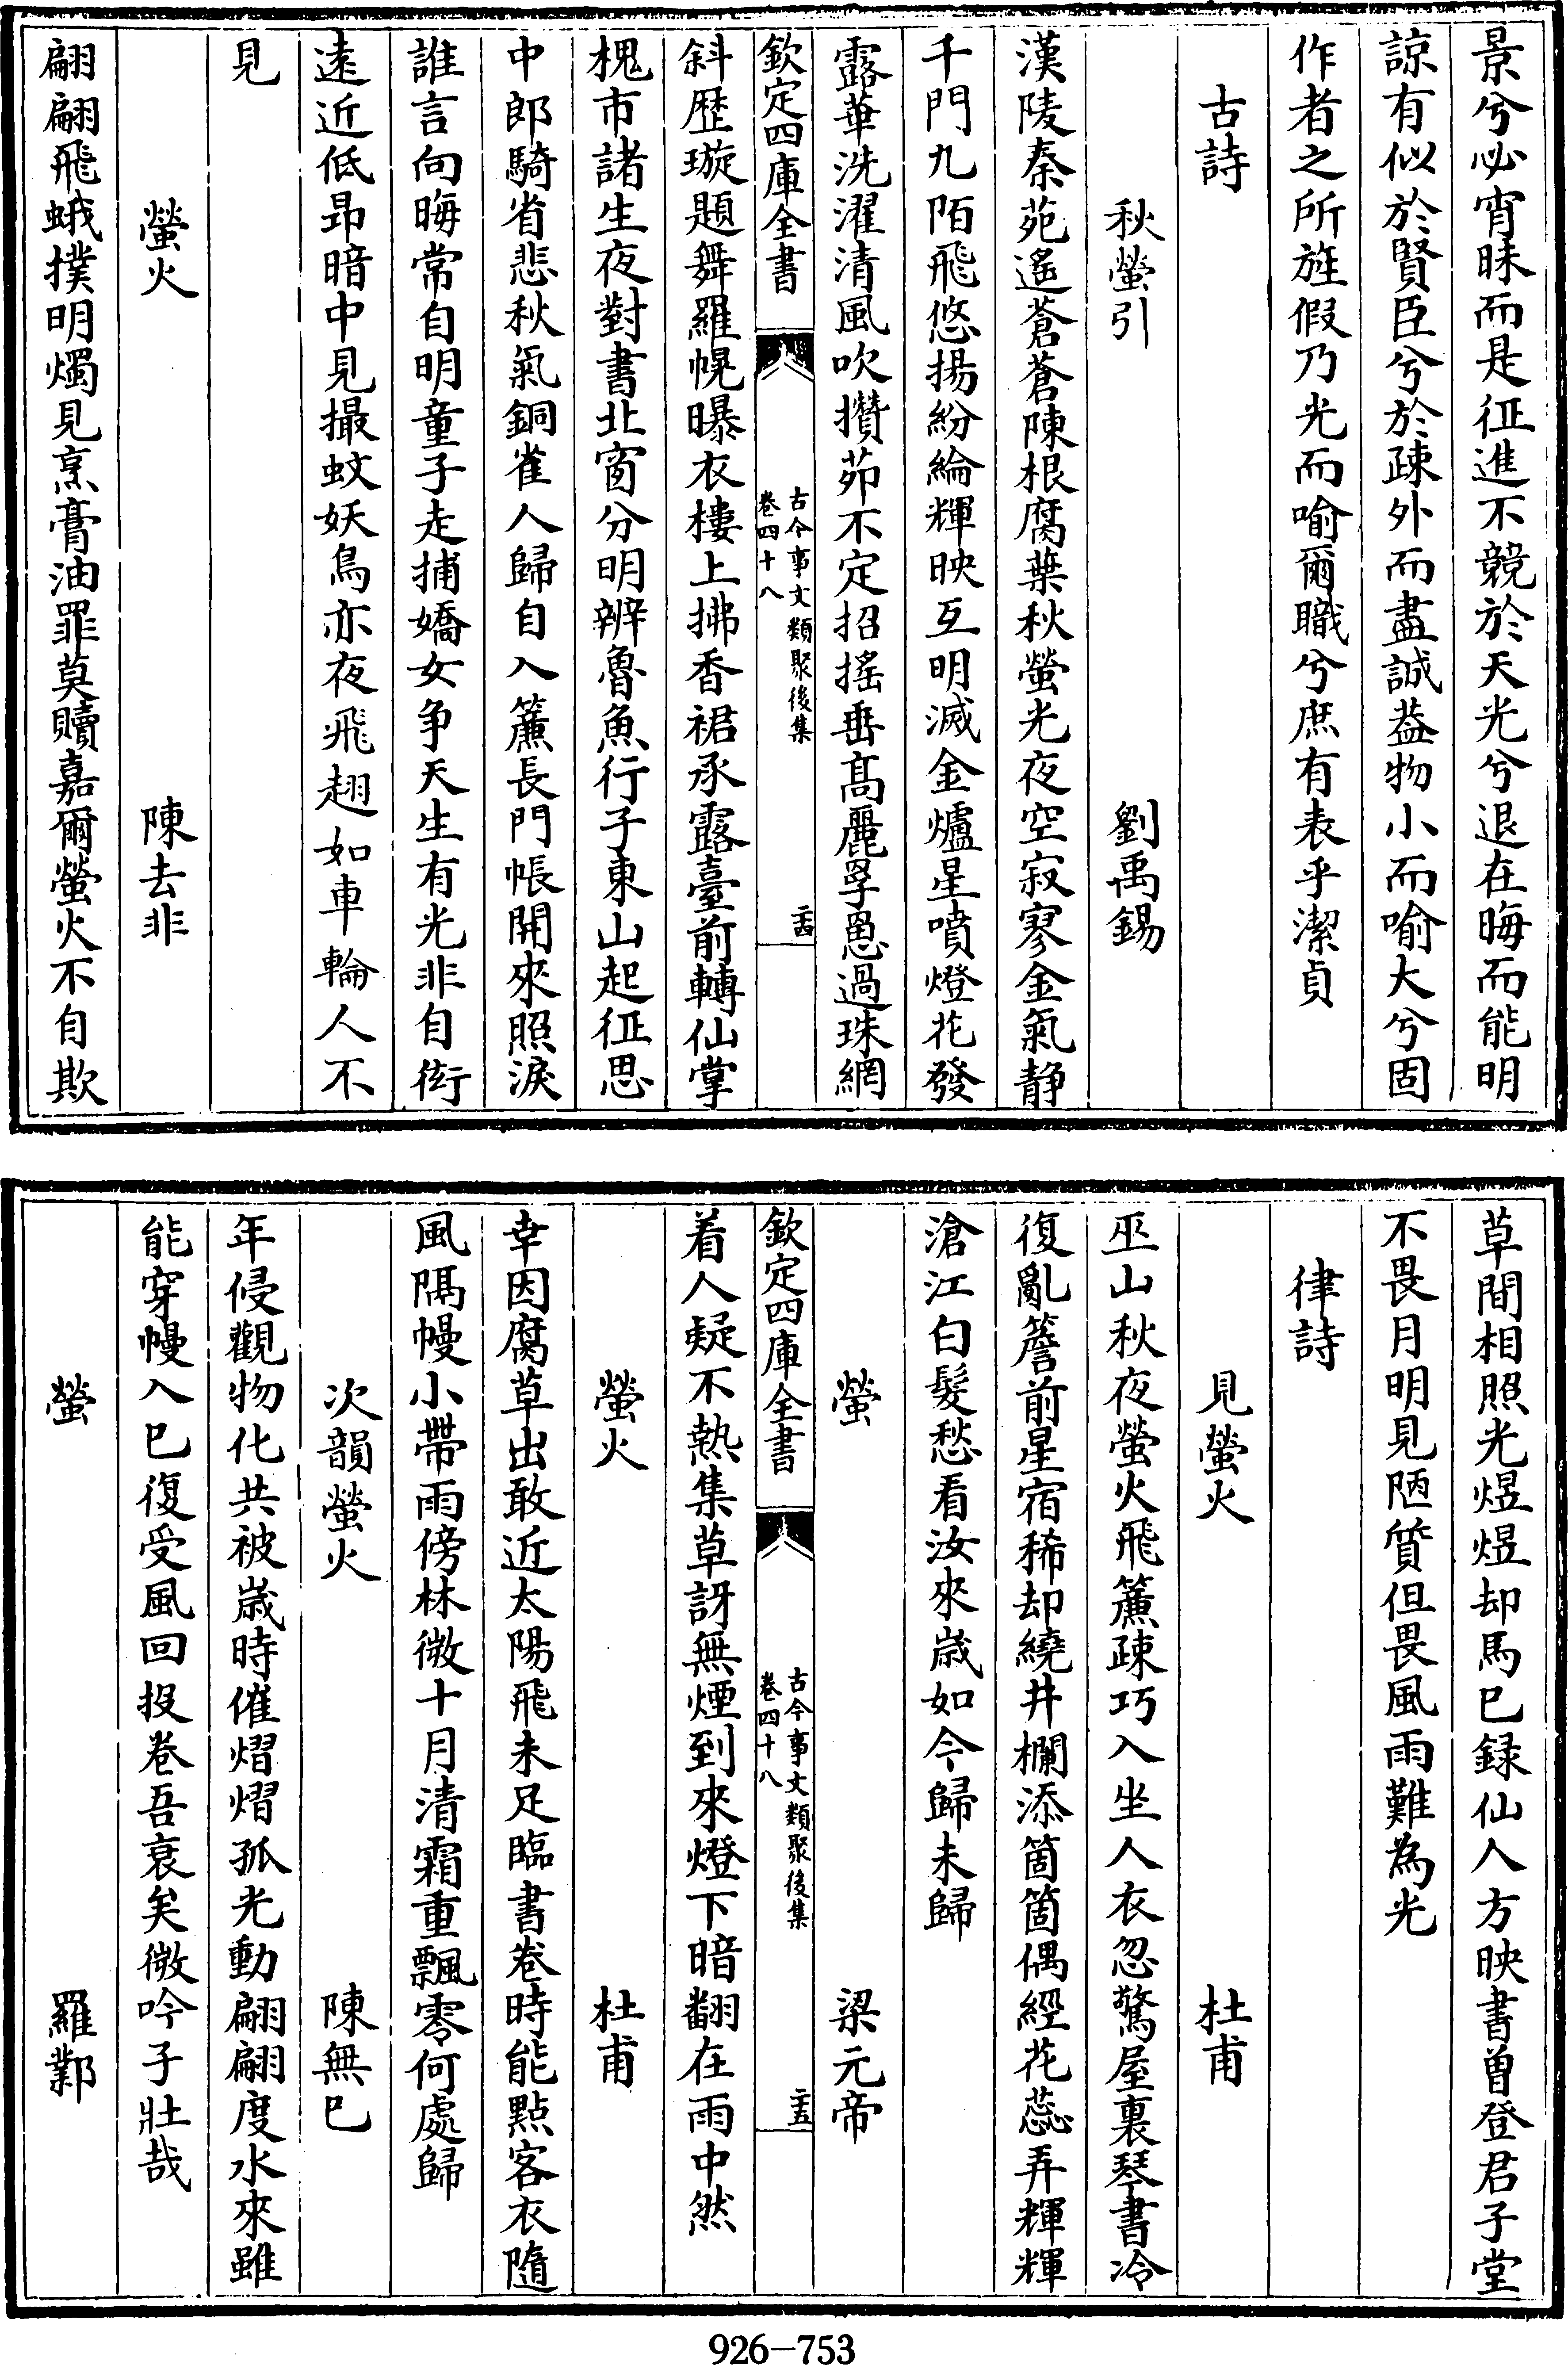 景兮必宵昧而是征進不競於天光兮退在晦而能明
諒有似於賢臣兮於疎外而盡誠葢物小而喻大兮固
作者之所旌假乃光而喻爾職兮庶有表乎潔貞
古詩
秋螢引 劉禹錫
漢陵秦苑遙蒼蒼陳根腐葉秋螢光夜空寂寥金氣静
千門九陌飛悠揚紛綸輝映互明滅金爐星噴燈花發
露華洗濯清風吹攢茆不定招搖垂髙麗罘罳過珠網
欽定四庫全書
古今事文類聚後集
卷四十八
二十四
斜歴璇題舞羅幌曝衣樓上拂香裙承露臺前轉仙掌
槐市諸生夜對書北窗分明辨魯魚行子東山起征思
中郎騎省悲秋氣銅雀人歸自入簾長門帳開來照淚
誰言向晦常自明童子走捕嬌女争天生有光非自衒
逺近低昻暗中見撮蚊妖鳥亦夜飛翅如車輪人不
見
螢火 陳去非
翩翩飛蛾撲明燭見烹膏油罪莫贖嘉爾螢火不自欺
草間相照光煜煜却馬已録仙人方映書曾登君子堂
不畏月明見陋質但畏風雨難為光
律詩
見螢火 杜甫
巫山秋夜螢火飛簾疎巧入坐人衣忽驚屋裏琴書冷
復亂簷前星宿稀却繞井欄添箇箇偶經花蕊弄輝輝
滄江白髮愁看汝來嵗如今歸未歸
螢 梁元帝
欽定四庫全書
古今事文類聚後集
卷四十八
二十五
着人疑不熱集草訝無煙到來燈下暗翻在雨中然
螢火 杜甫
幸因腐草出敢近太陽飛未足臨書卷時能點客衣隨
風隔幔小帶雨傍林微十月清霜重飄零何處歸
次韻螢火 陳無已
年侵觀物化共被嵗時催熠熠孤光動翩翩度水來雖
能穿幔入已復受風回投卷吾衰矣微吟子壯哉
螢 羅鄴
926-753